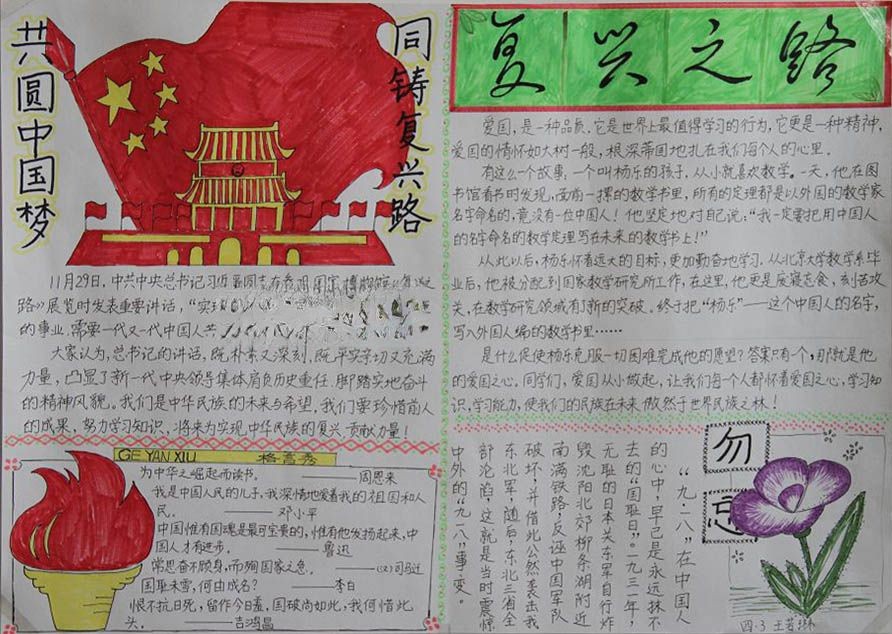 共圆中国梦
同铸复兴路
11月29日,中共中央总书记习近平同志在参观国家博物馆
路》展览时发表重要讲话,“实现
的事业,需要一代又一代中国人共
大家认为,总书记的讲话,既朴素又深刻,既平实亲切又充满
力量,凸显了新一代中央领导集体肩负历史重任.脚踏实地奋斗
的精神风貌。我们是中华民族的未来与希望,我们要珍惜前人
的成果,努力学习知识,将来为实现中华民族的复兴贡献力量!
GE YAN XIU
格言秀
为中华之崛起而读书。——周恩来
我是中国人民的儿子,我深情地爱着我的祖国和人
民。——邓小平
中国惟有国魂是最可宝贵的,惟有他发扬起来,中
国人才有进步。——鲁迅
常思奋不顾身,而殉国家之急。——(汉)司马迁
国耻未雪,何由成名?——李白
恨不抗日死,留作今日羞,国破尚如此,我何惜此
头。——吉鸿昌
复兴之路
爱国,是一种品质,它是世界上最值得学习的行为,它更是一种精神,
爱国的情怀如大树一般,根深蒂固地扎在我们每个人的心里。
有这么一个故事:一个叫杨乐的孩子,从小就喜欢数学。一天,他在图
书馆看书时发现,面前一摞的数学书里,所有的定理都是以外国的数学家
名字命名的,竟没有一位中国人!他坚定地对自己说:“我一定要把用中国人
的名字命名的数学定理写在未来的数学书上!”
从此以后,杨乐怀着远大的目标,更加勤奋地学习.从北京大学数学系毕
业后,他被分配到国家数学研究所工作,在这里,他更是废寝忘食,刻苦攻
关,在数学研究领域有了新的突破。终于把“杨乐”——这个中国人的名字,
写入外国人编的数学书里……
是什么促使杨乐克服一切困难完成他的愿望?答案只有一个,那就是他
的爱国之心。同学们,爱国从小做起,让我们每个人都怀着爱国之心,学习知
识,学习能力,使我们的民族在未来傲然于世界民族之林!
勿忘
“九·一八”在中国人
的心中,早已是永远抹不
去的“国耻日”。一九三一年,
无耻的日本关东军自行炸
毁沈阳北郊柳条湖附近
南满铁路,反诬中国军队
破坏,并借此公然袭击我
东北军,随后,东北三省全
部沦陷,这就是当时震惊
中外的“九一八”事变。
四.3 王若琳